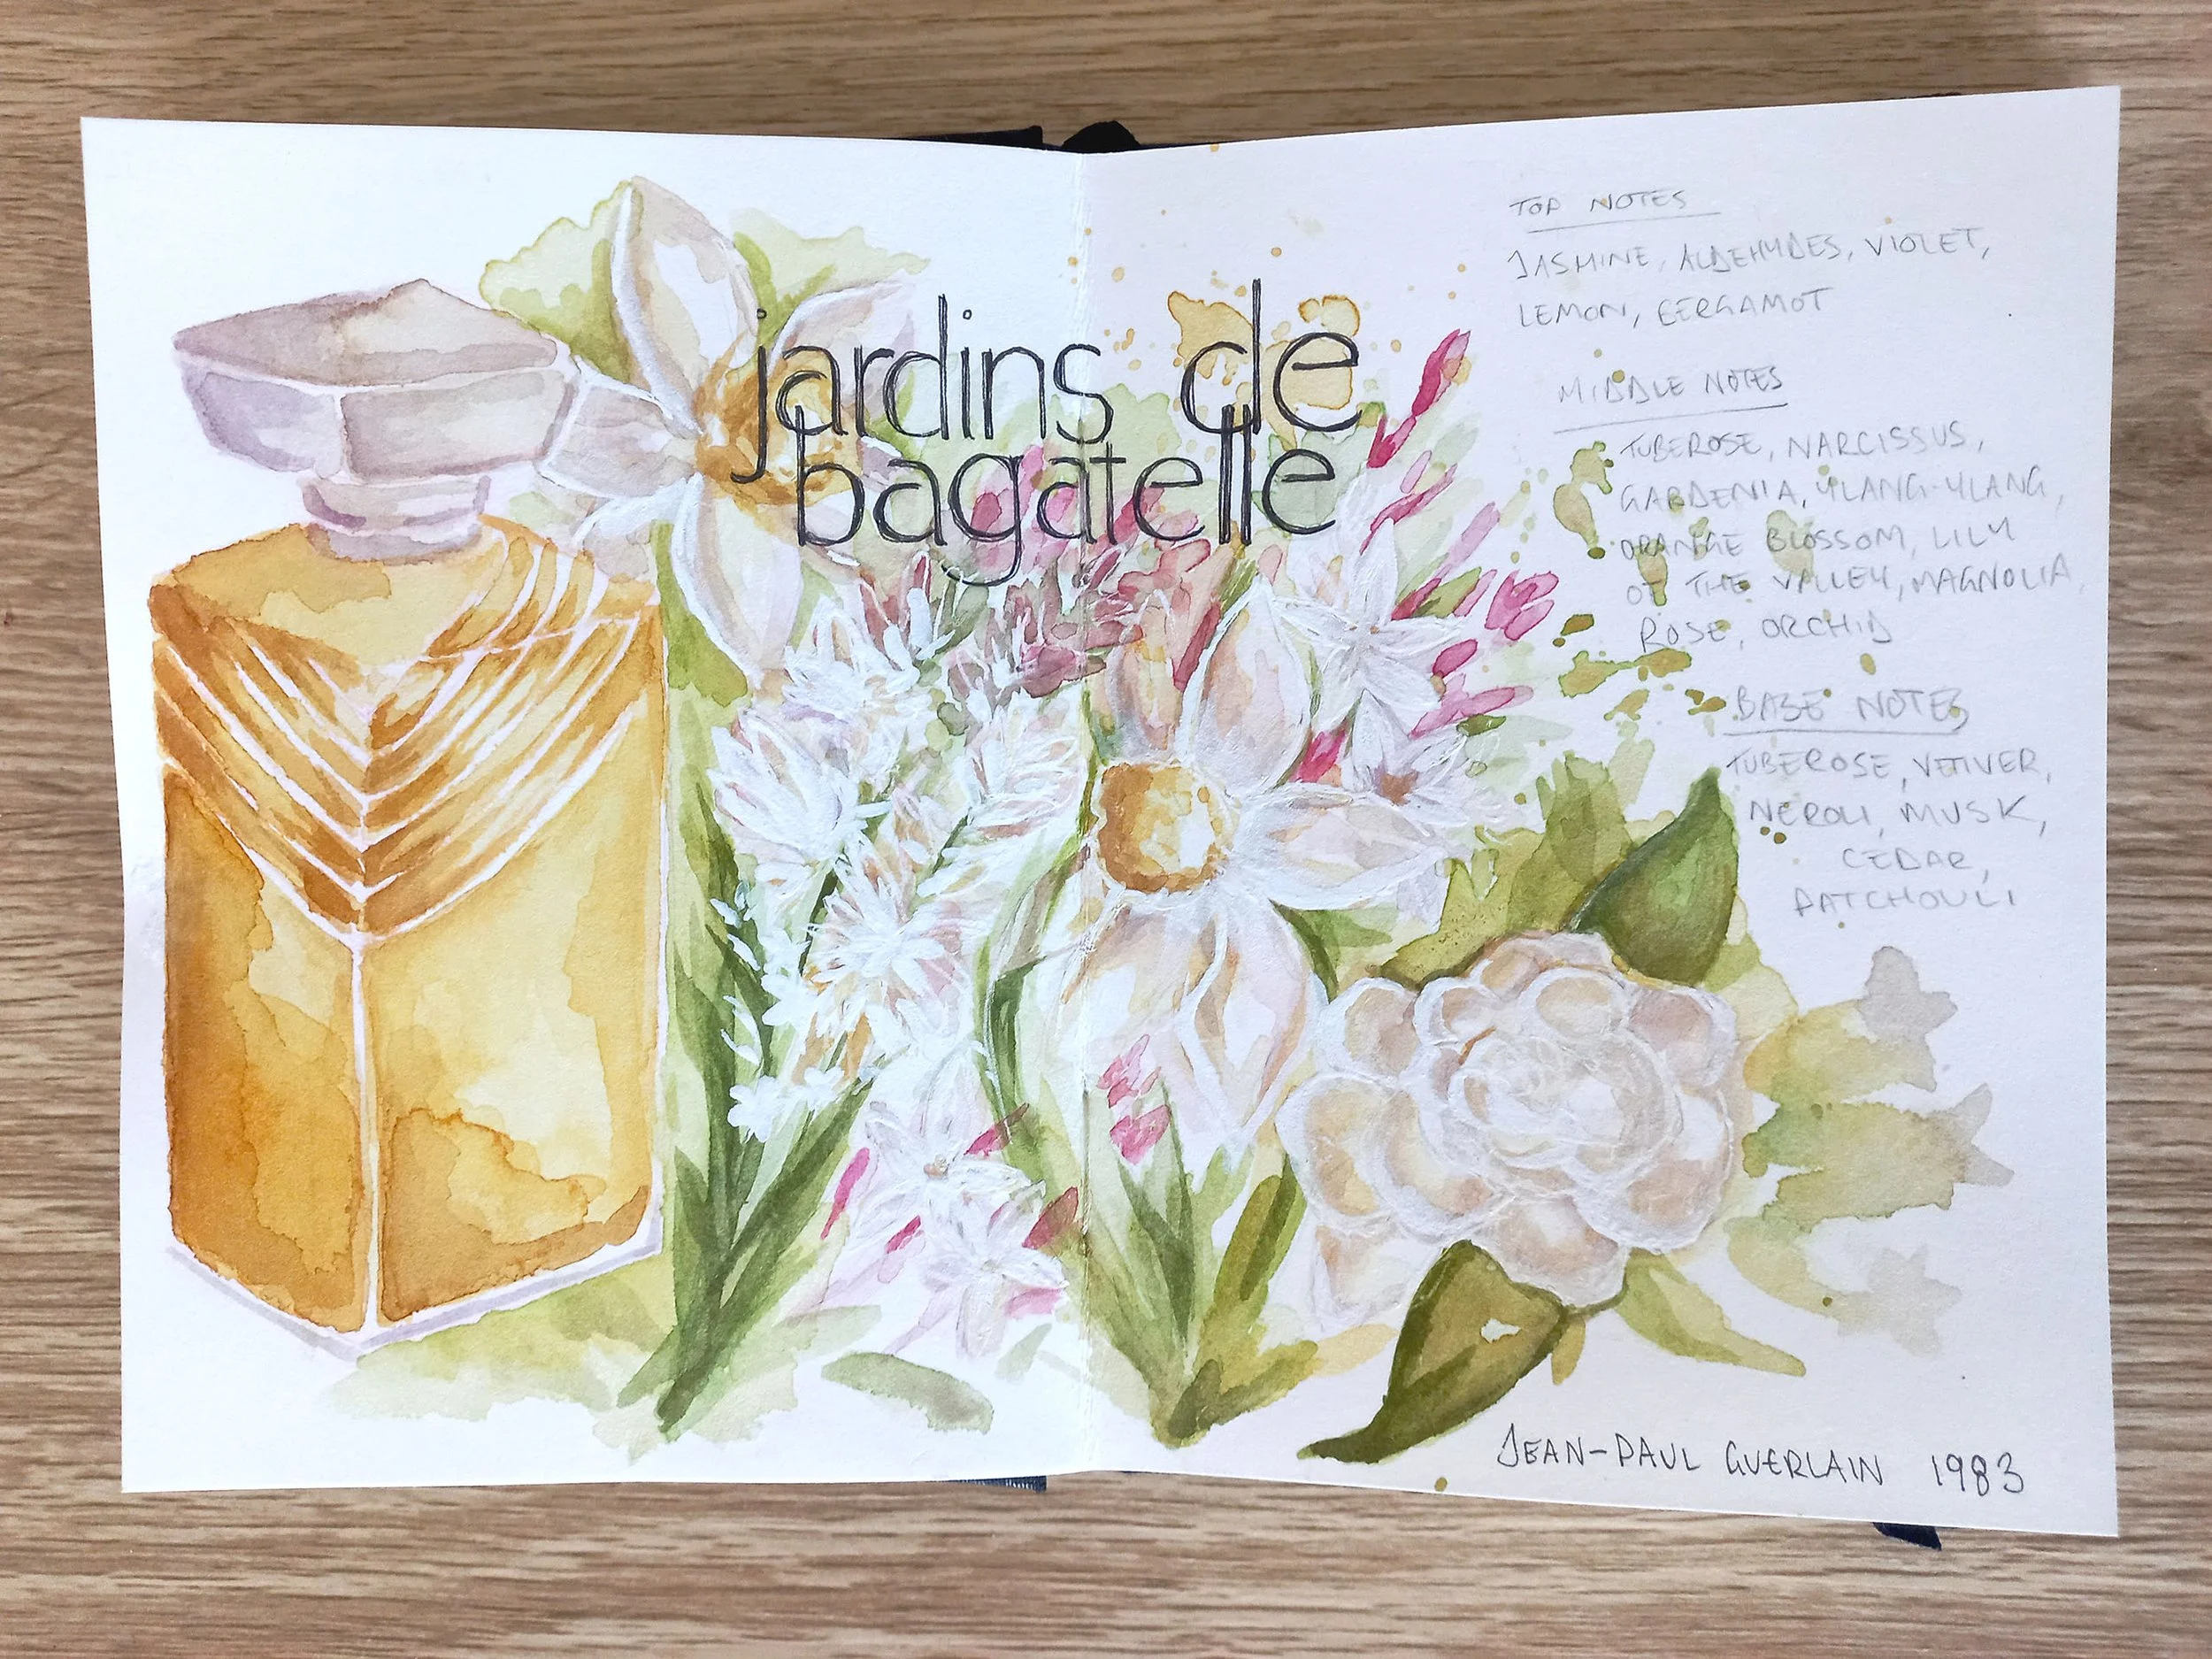 jardins de
bagatelle
TOP NOTES
JASMINE, ALDEHYDES, VIOLET,
LEMON, BERGAMOT
MIDDLE NOTES
TUBEROSE, NARCISSUS,
GARDENIA, YLANG-YLANG,
ORANGE BLOSSOM, LILY
OF THE VALLEY, MAGNOLIA,
ROSE, ORCHID
BASE NOTES
TUBEROSE, VETIVER,
NEROLI, MUSK,
CEDAR,
PATCHOULI
JEAN-PAUL GUERLAIN 1983